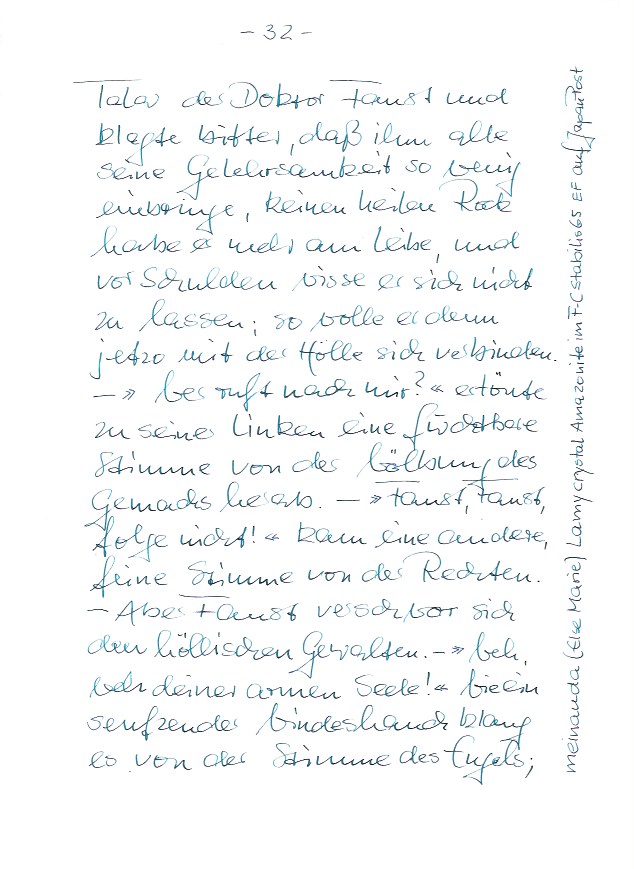 - 32 -
Talar der Doktor Faust und
klagte bitter, daß ihm alle
seine Gelehrsamkeit so wenig
einbringe, keinen heilen Rock
habe er mehr am Leibe, und
vor Schulden wisse er sich nicht
zu lassen; so wolle er denn
jetzo mit der Hölle sich verbinden.
—» Wer ruft nach mir? « ertönte
zu seiner Linken eine furchtbare
Stimme von der Wölbung des
Gemachs herab. — » Faust, Faust,
folge nicht! « kam eine andere,
feine Stimme von der Rechten.
– Aber Faust verschwor sich
den höllischen Gewalten. – » Weh,
weh deiner armen Seele! « Wie ein
seufzender Windeshauch klang
es von der Stimme des Engels;
meinanda (Else Marie) Lamy crystal Amazonite im F-C stabilis 65 EF auf Japan Post